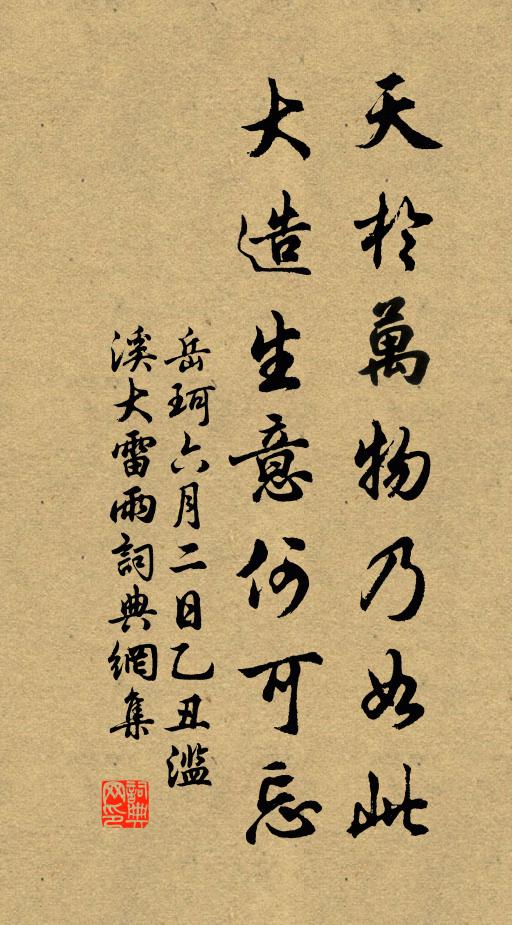 天於萬物乃如此
大造生意何可忘
岳珂六月二日乙丑濫
溪大雷雨詞典網集
詞典網印